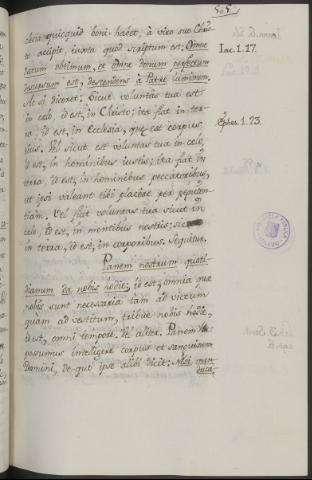 505
clesia quicquid boni habet, à viro suo Chris
to accipit, iuxta quod scriptum est; Omne
datum obtimum, et omne donum perfectum
desursum est, descendens à Patre luminum.
Ac si diceret; Sicut voluntas tua est
in celo, id est, in Christo; ita fiat in ter-
ra; id est, in Ecclesia, que est corpus
eius. Vel sicut est voluntas tua in celo,
id est, in hominibus iustis; ita fiat in
terra, id est, in hominibus peccatoribus,
ut ipsi valeant tibi placere per peniten
tiam. Vel fiat voluntas tua sicut in
celo, id est, in mentibus nostris; sic
in terra, id est, in corporibus. Sequitur.
Panem nostrum quoti-
dianum da nobis hodie; id est, omnia que
nobis sunt necessaria tam ad victum
quam ad vestitum, tribue nobis hodie,
id est, omni tempore. Vel aliter. Panem
possumus intelligere corpus et sanguinem
Domini, de quo ipse alibi dicit: Nisi man
duca-
Iac. 1. 17.
Ephes. 1. 23.